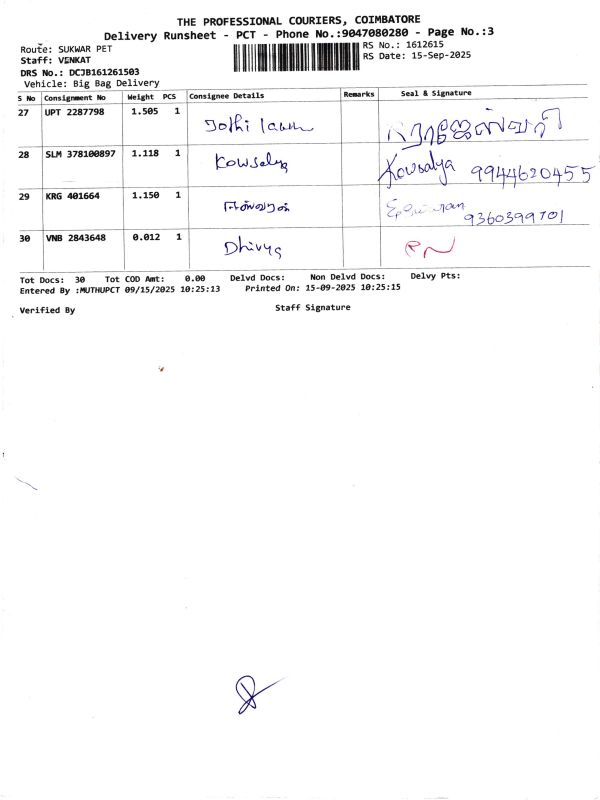 THE PROFESSIONAL COURIERS, COIMBATORE
Delivery Runsheet - PCT - Phone No.:9047080280 - Page No.:3
Route: SUKWAR PET
RS No.: 1612615
Staff: VENKAT
RS Date: 15-Sep-2025
DRS No.: DCJB161261503
Vehicle: Big Bag Delivery
S No Consignment No Weight PCS Consignee Details Remarks Seal & Signature
27 UPT 2287798 1.505 1 Jothi ராஜேஸ்வரி
28 SLM 378100897 1.118 1 Kowsalya Kowsalya 9944620455
29 KRG 401664 1.150 1 9360399701
30 VNB 2843648 0.012 1 Dhivya
Tot Docs: 30 Tot COD Amt: 0.00 Delvd Docs: Non Delvd Docs: Delvy Pts:
Entered By :MUTHUPCT 09/15/2025 10:25:13 Printed On: 15-09-2025 10:25:15
Verified By Staff Signature